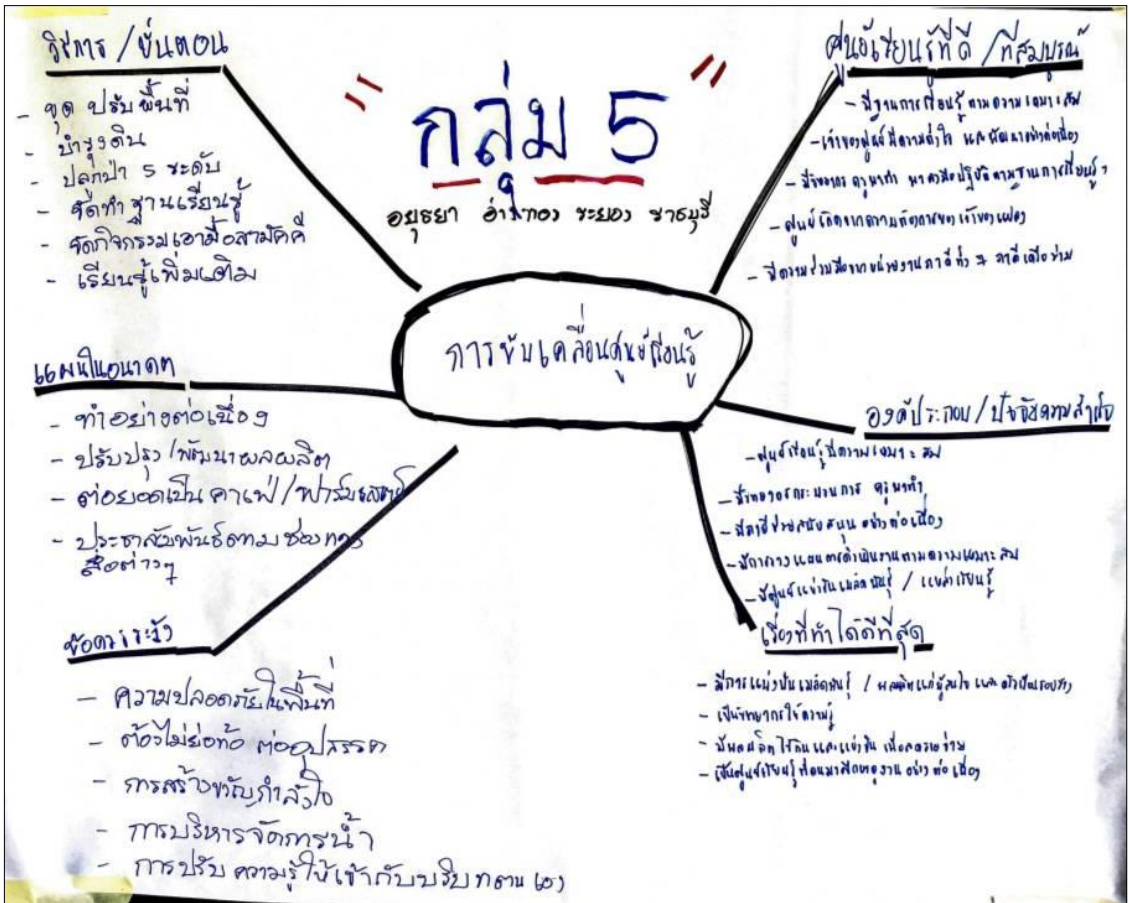 " กลุ่ม 5 "
อยุธยา อ่างทอง ระยอง ราชบุรี
การขับเคลื่อนศูนย์เรียนรู้
วิธีการ / ขั้นตอน
- ขุด ปรับพื้นที่
- บำรุงดิน
- ปลูกป่า 5 ระดับ
- จัดทำฐานเรียนรู้
- จัดกิจกรรมเอามื้อสามัคคี
- เรียนรู้เพิ่มเติม
แผนในอนาคต
- ทำอย่างต่อเนื่อง
- ปรับปรุง / พัฒนาผลผลิต
- ต่อยอดเป็น คาเฟ่ / ฟาร์มสเตย์
- ประชาสัมพันธ์ตามช่องทาง
สื่อต่างๆ
ข้อควรระวัง
- ความปลอดภัยในพื้นที่
- ต้องไม่ย่อท้อ ต่ออุปสรรค
- การสร้างขวัญกำลังใจ
- การบริหารจัดการน้ำ
- การปรับ ความรู้ให้เข้ากับบริบทตนเอง
ศูนย์เรียนรู้ที่ดี / ที่สมบูรณ์
- มีฐานการเรียนรู้ ตามความเหมาะสม
- เจ้าของศูนย์มีความตั้งใจ และพัฒนาอย่างต่อเนื่อง
- มีวิทยากร ครูพาทำ พาลงมือปฏิบัติตามฐานการเรียนรู้ ฯ
- ศูนย์เกิดจากความต้องการของเจ้าของแปลง
- มีความร่วมมือจากหน่วยงานภาคีทั้ง 7 ภาคีเครือข่าย
องค์ประกอบ / ปัจจัยความสำเร็จ
- ศูนย์เรียนรู้มีความเหมาะสม
- มีวิทยากรกระบวนการ ครูพาทำ
- มีภาคีช่วยสนับสนุน อย่างต่อเนื่อง
- มีการวางแผนการดำเนินงานตามความเหมาะสม
- มีศูนย์แบ่งปันเมล็ดพันธุ์ / แหล่งเรียนรู้
เรื่องที่ทำได้ดีที่สุด
- มีการแบ่งปันเมล็ดพันธุ์ / ผลผลิตแก่ผู้สนใจ และครัวเรือนรอบข้าง
- เป็นวิทยากรให้ความรู้
- มีผลผลิตไว้กินและแบ่งปัน เพื่อลดรายจ่าย
- เป็นศูนย์เรียนรู้ที่คนมาศึกษาดูงาน อย่างต่อเนื่อง